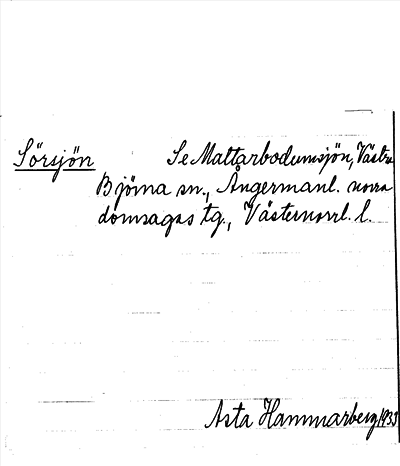 Sörsjön Se Mattarbodumsjön, Västra
Björna sn., Ångermanl. norra
domsagas tg., Västernorrl. l.
Asta Hammarberg 1933